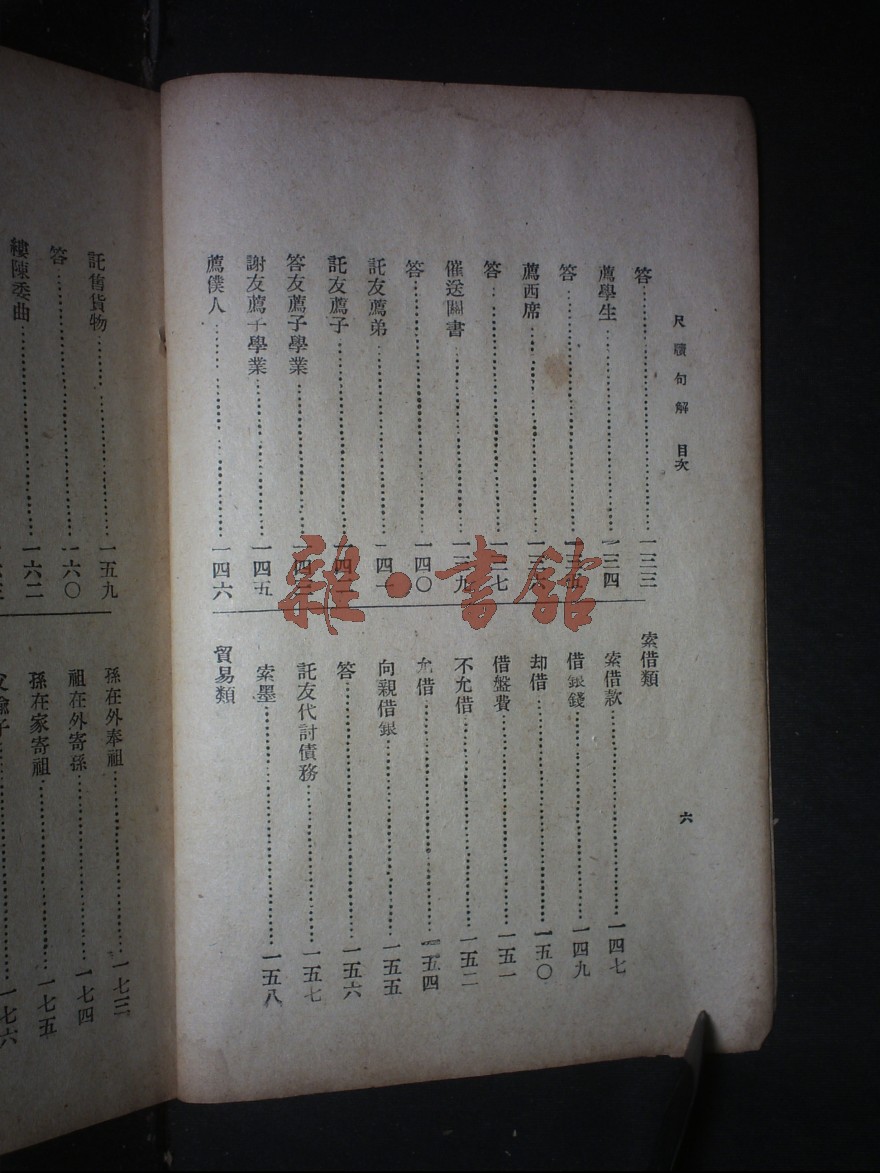 尺牘句解 目次
六
答……一三三
薦學生……一三四
答……一三五
薦西席……一三六
答……一三七
催送關書……一三九
答……一四〇
託友薦弟……一四一
託友薦子……一四二
答友薦子學業……一四三
謝友薦子學業……一四五
薦僕人……一四六
索借類
索借款……一四七
借銀錢……一四九
却借……一五〇
借盤費……一五一
不允借……一五二
允借……一五四
向親借銀……一五五
答……一五六
託友代討債務……一五七
索墨……一五八
貿易類
託售貨物……一五九
答……一六〇
縷陳委曲……一六二
孫在外奉祖……一七三
祖在外寄孫……一七四
孫在家寄祖……一七五
一七六
雜·書館